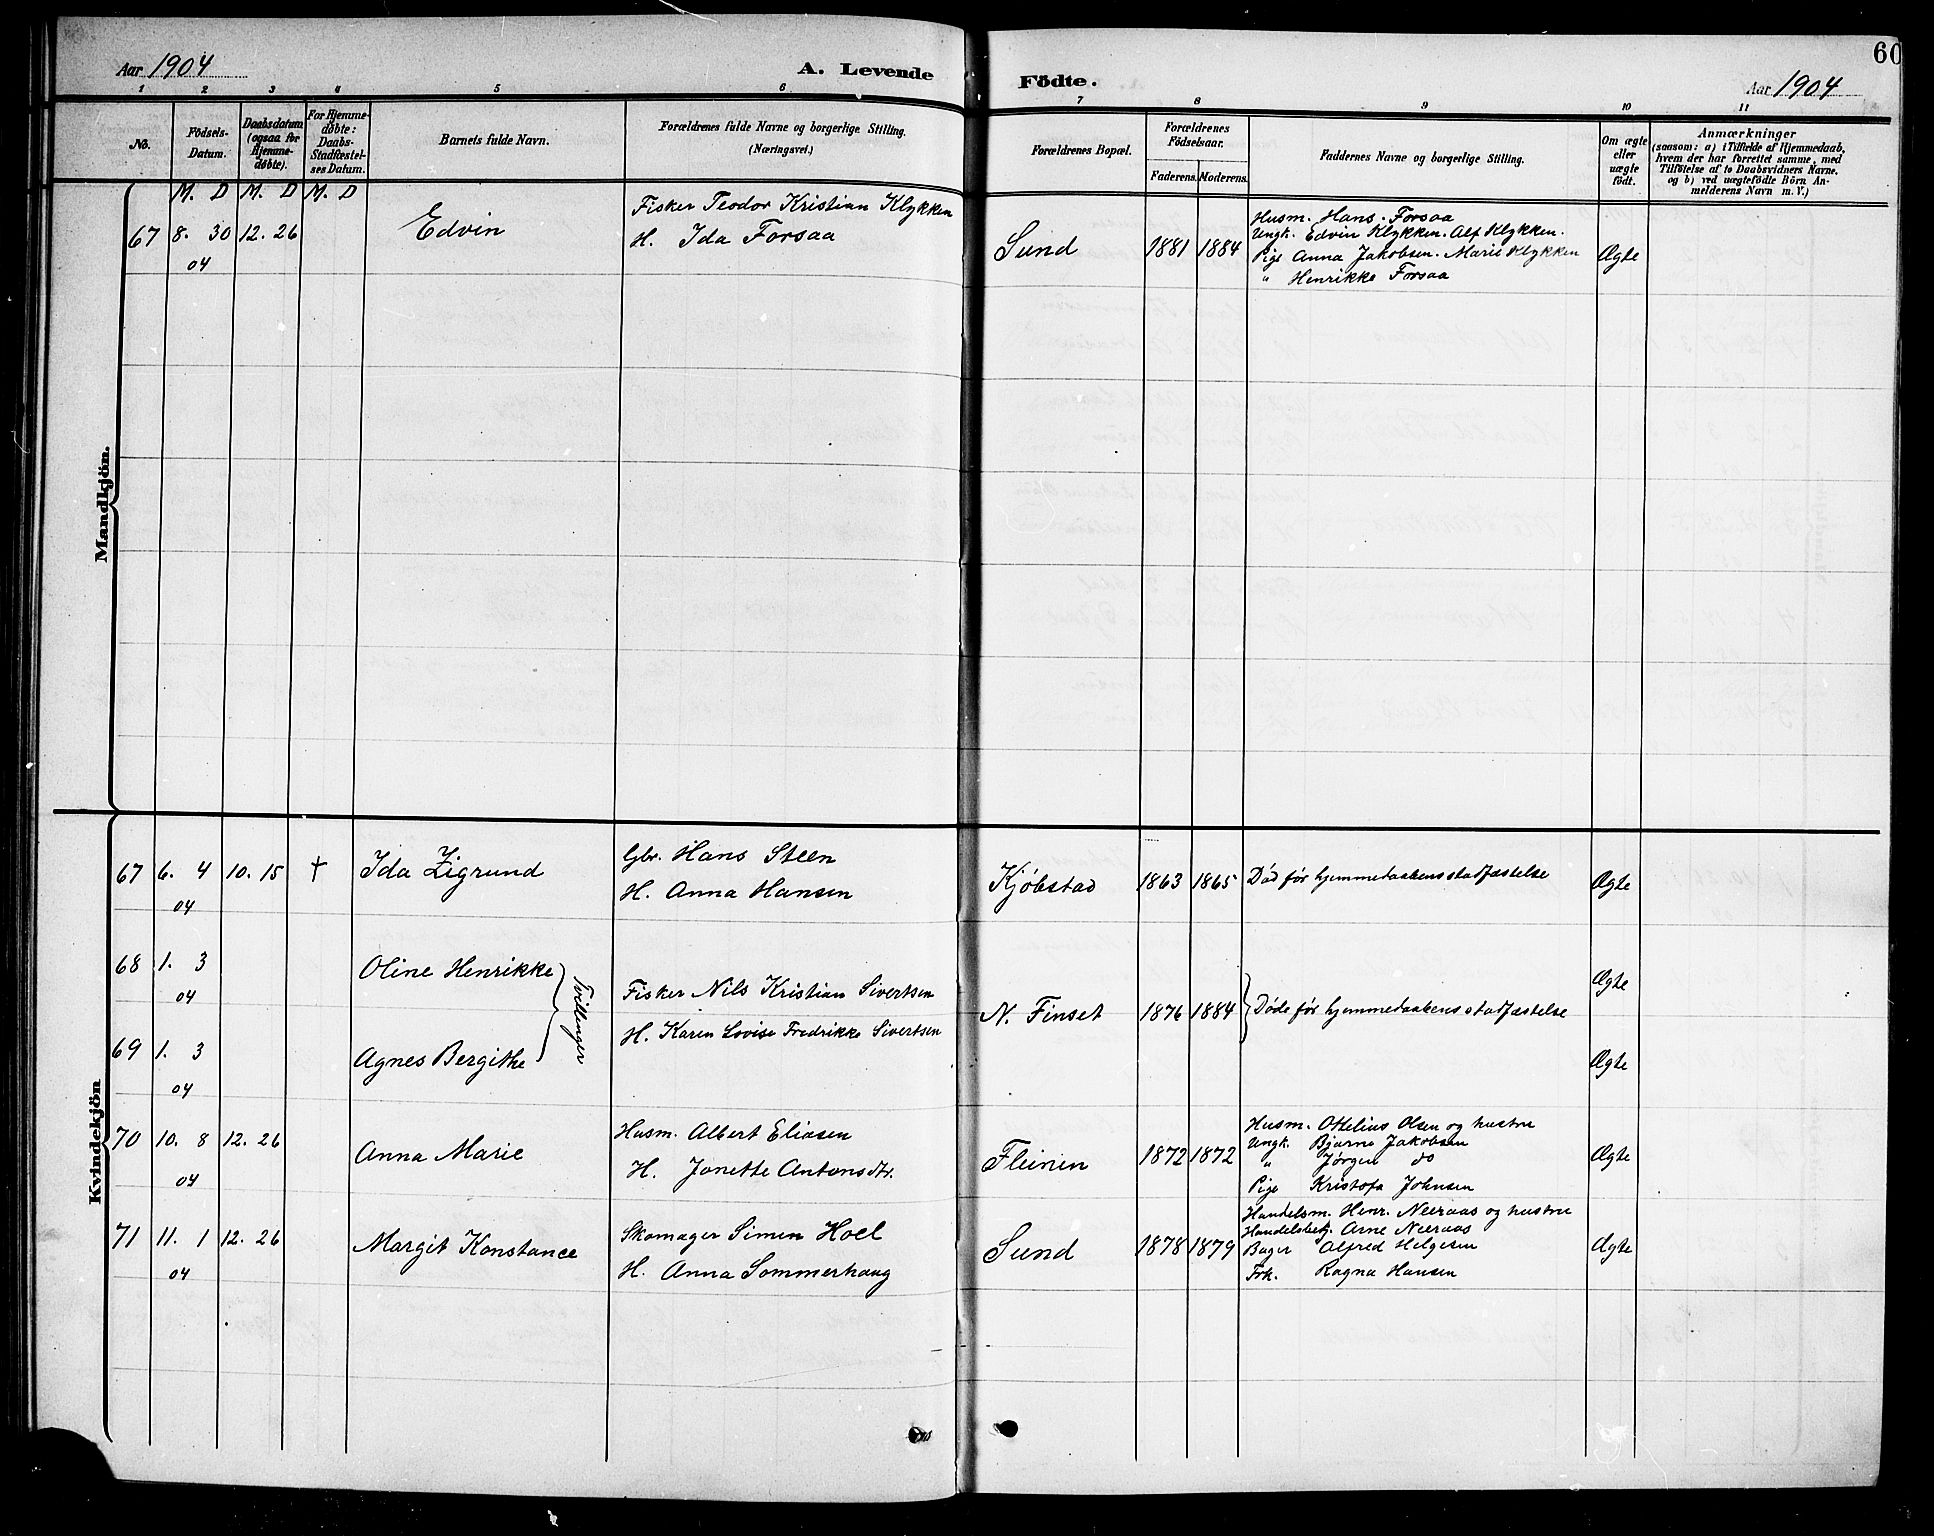 Aar 1904
A. Levende Födte.
Aar 1904
60
1 2 3 4 5 6 7 8 9 10 11
No.
Födsels-Datum.
Daabsdatum (ogsaa for Hjemme-döbte).
For Hjemme-döbte: Daabs-Stadfæstel-ses Datum.
Barnets fulde Navn.
Forældrenes fulde Navne og borgerlige Stilling.
(Næringsvei.)
Forældrenes Bopæl.
Forældrenes Födselsaar.
Faderens. Moderens.
Faddernes Navne og borgerlige Stilling.
Om ægte eller uægte födt.
Anmærkninger
(saasom: a) i Tilfælde af Hjemmedaab,
hvem der har forrettet samme, med
Tilföielse af to Daabsvidners Navne,
og b) ved uægtefödte Börn An-
melderens Navn m. V.)
Mandkjön.
M. D M. D M. D
67 8. 30 04 12. 26 Edvin
Fisker Teodor Kristian Klykken
H. Ida Forsaa
Sund 1881 1884
Husm. Hans Forsaa
Ungk. Edvin Klykken. Alf Klykken.
Pige Anna Jakobsen. Marie Klykken
" Henrikke Forsaa
Ægte
Kvindekjön
67 6. 4 04 10. 15 † Ida Zigrund
Gbr. Hans Steen
H. Anna Hansen
Kjøbstad 1863 1865 Død før hjemmedaabens stadfæstelse Ægte
68 1. 3 04 Oline Henrikke
69 1. 3 04 Agnes Bergithe
Tvillinger
Fisker Nils Kristian Sivertsen
H. Karen Lovise Fredrikke Sivertsen
N. Finset 1876 1884 Døde før hjemmedaabens stadfæstelse
Ægte
Ægte
70 10. 8 04 12. 26 Anna Marie
Husm. Albert Eliasen
H. Jonette Antonsdtr.
Fleinen 1872 1872
Husm. Ottelius Olsen og hustru
Ungk. Bjarne Jakobsen
" Jørgen do
Pige Kristofa Johnsen
Ægte
71 11. 1 04 12. 26 Margit Konstance
Skomager Simen Hoel
H. Anna Sommerhaug
Sund 1878 1879
Handelsm. Henr. Neeraas og hustru
Handelsbetj. Arne Neeraas
Bager Alfred Helgesen
Frk. Ragna Hansen
Ægte